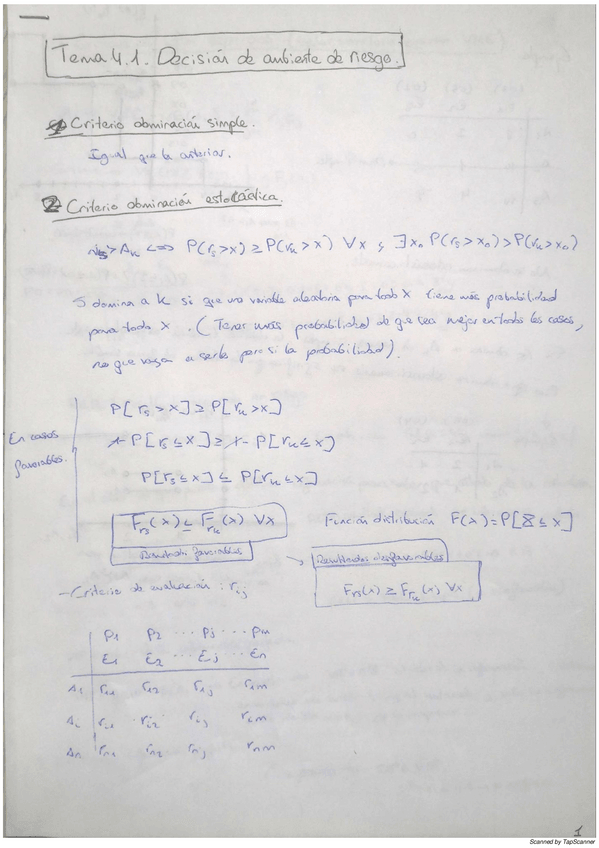 Tema 4.1. Decisión de ambiente de riesgo.
1 Criterio obminación simple.
Igual que la anterior.
2 Criterio obminación estocástica.
> A_k <=> P(r_s > x) ≥ P(r_k > x) ∀x y ∃x_0 P(r_s > x_0) > P(r_k > x_0)
S domina a K si que una variable aleatoria para todo X tiene más probabilidad
para todo X. (Tener más probabilidad de que sea mejor en todos los casos,
no que vaya a serlo pero si la probabilidad).
En casos favorables.
P[r_s > x] ≥ P[r_k > x]
1 - P[r_s ≤ x] ≥ 1 - P[r_k ≤ x]
P[r_s ≤ x] ≤ P[r_k ≤ x]
F_rs(x) ≤ F_rk(x) ∀x
Función distribución F(x) = P[X ≤ x]
Resultados favorables
Resultados desfavorables
F_rs(x) ≥ F_rk(x) ∀x
- Criterio de evaluación: r_ij
P1 P2 ... Pj ... Pm
E1 E2 ... Ej ... En
A1 r11 r12 r1j r1m
Ai ri1 ri2 rij rim
An rn1 rn2 rnj rnm
1
Scanned by TapScanner